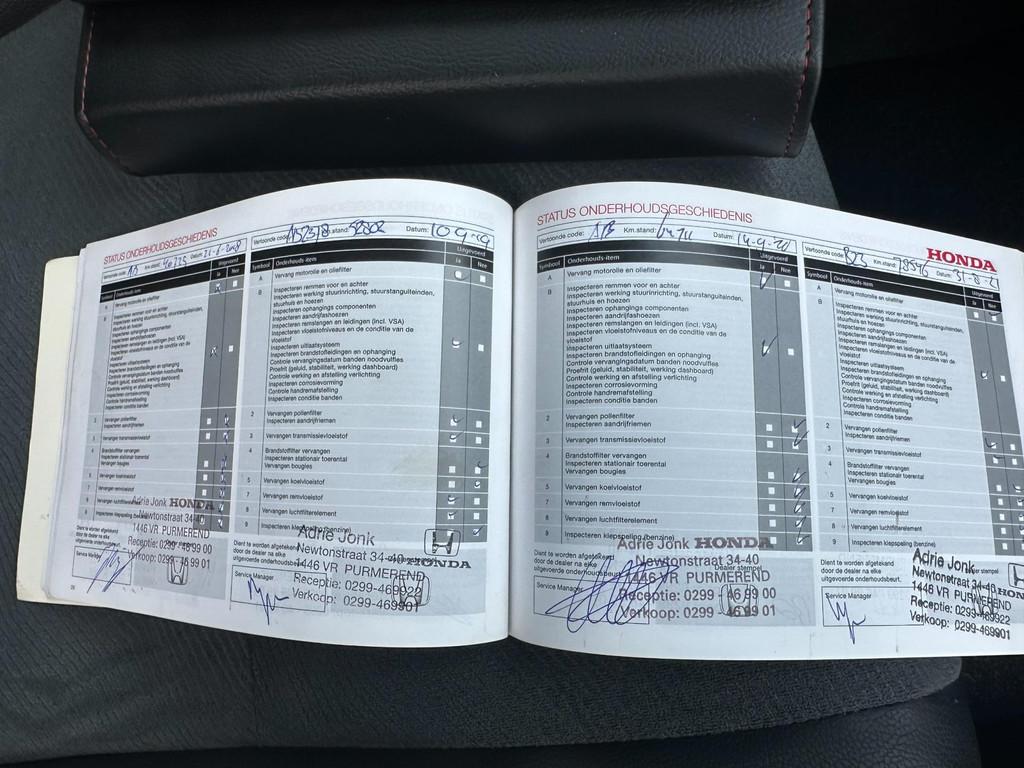 STATUS ONDERHOUDSGESCHIEDENIS
Vertoonde code: AB Km.stand: 40725 Datum: 21-6-2018
Symbool Onderhouds-item Uitgevoerd
Ja Nee
A Vervang motorolie en oliefilter
B Inspecteren remmen voor en achter
Inspecteren werking stuurinrichting, stuurstanguiteinden,
stuurhuis en hoezen
Inspecteren ophangings componenten
Inspecteren aandrijfashoezen
Inspecteren remslangen en leidingen (incl. VSA)
Inspecteren vloeistofniveaus en de conditie van de
vloeistof
Inspecteren uitlaatsysteem
Inspecteren brandstofleidingen en ophanging
Controle vervangingsdatum banden noodvulfles
Proefrit (geluid, stabiliteit, werking dashboard)
Controle werking en afstelling verlichting
Inspecteren corrosievorming
Controle handremafstelling
Inspecteren conditie banden
2 Vervangen pollenfilter
Inspecteren aandrijfriemen
3 Vervangen transmissievloeistof
4 Brandstoffilter vervangen
Inspecteren stationair toerental
Vervangen bougies
5 Vervangen koelvloeistof
7 Vervangen remvloeistof
8 Vervangen luchtfilterelement
9 Inspecteren klepspeling (benzine)
Dient te worden afgetekend
door de dealer na elke
uitgevoerde onderhoudsbeurt.
Service Manager
Adrie Jonk HONDA
Newtonstraat 34-40
1446 VR PURMEREND
Receptie: 0299-46 99 00
Verkoop: 0299-46 99 01
Vertoonde code: Km.stand: 52802 Datum: 10-9-19
Symbool Onderhouds-item Uitgevoerd
Ja Nee
A Vervang motorolie en oliefilter
B Inspecteren remmen voor en achter
Inspecteren werking stuurinrichting, stuurstanguiteinden,
stuurhuis en hoezen
Inspecteren ophangings componenten
Inspecteren aandrijfashoezen
Inspecteren remslangen en leidingen (incl. VSA)
Inspecteren vloeistofniveaus en de conditie van de
vloeistof
Inspecteren uitlaatsysteem
Inspecteren brandstofleidingen en ophanging
Controle vervangingsdatum banden noodvulfles
Proefrit (geluid, stabiliteit, werking dashboard)
Controle werking en afstelling verlichting
Inspecteren corrosievorming
Controle handremafstelling
Inspecteren conditie banden
2 Vervangen pollenfilter
Inspecteren aandrijfriemen
3 Vervangen transmissievloeistof
4 Brandstoffilter vervangen
Inspecteren stationair toerental
Vervangen bougies
5 Vervangen koelvloeistof
7 Vervangen remvloeistof
8 Vervangen luchtfilterelement
9 Inspecteren klepspeling (benzine)
Dient te worden afgetekend
door de dealer na elke
uitgevoerde onderhoudsbeurt.
Service Manager
Adrie Jonk
Newtonstraat 34-40 HONDA
1446 VR PURMEREND
Receptie: 0299-469922
Verkoop: 0299-469901
STATUS ONDERHOUDSGESCHIEDENIS
Vertoonde code: AB Km.stand: Datum: 14-9-20
Symbool Onderhouds-item Uitgevoerd
Ja Nee
A Vervang motorolie en oliefilter
B Inspecteren remmen voor en achter
Inspecteren werking stuurinrichting, stuurstanguiteinden,
stuurhuis en hoezen
Inspecteren ophangings componenten
Inspecteren aandrijfashoezen
Inspecteren remslangen en leidingen (incl. VSA)
Inspecteren vloeistofniveaus en de conditie van de
vloeistof
Inspecteren uitlaatsysteem
Inspecteren brandstofleidingen en ophanging
Controle vervangingsdatum banden noodvulfles
Proefrit (geluid, stabiliteit, werking dashboard)
Controle werking en afstelling verlichting
Inspecteren corrosievorming
Controle handremafstelling
Inspecteren conditie banden
2 Vervangen pollenfilter
Inspecteren aandrijfriemen
3 Vervangen transmissievloeistof
4 Brandstoffilter vervangen
Inspecteren stationair toerental
Vervangen bougies
5 Vervangen koelvloeistof
7 Vervangen remvloeistof
8 Vervangen luchtfilterelement
9 Inspecteren klepspeling (benzine)
Dient te worden afgetekend
door de dealer na elke
uitgevoerde onderhoudsbeurt.
Dealer stempel
Service Manager
Adrie Jonk HONDA
Newtonstraat 34-40
1446 VR PURMEREND
Receptie: 0299 - 46 99 00
Verkoop: 0299 - 46 99 01
HONDA
Vertoonde code: B23 Km.stand: 78546 Datum: 31-8-21
Symbool Onderhouds-item Uitgevoerd
Ja Nee
A Vervang motorolie en oliefilter
B Inspecteren remmen voor en achter
Inspecteren werking stuurinrichting, stuurstanguiteinden,
stuurhuis en hoezen
Inspecteren ophangings componenten
Inspecteren aandrijfashoezen
Inspecteren remslangen en leidingen (incl. VSA)
Inspecteren vloeistofniveaus en de conditie van de
vloeistof
Inspecteren uitlaatsysteem
Inspecteren brandstofleidingen en ophanging
Controle vervangingsdatum banden noodvulfles
Proefrit (geluid, stabiliteit, werking dashboard)
Controle werking en afstelling verlichting
Inspecteren corrosievorming
Controle handremafstelling
Inspecteren conditie banden
2 Vervangen pollenfilter
Inspecteren aandrijfriemen
3 Vervangen transmissievloeistof
4 Brandstoffilter vervangen
Inspecteren stationair toerental
Vervangen bougies
5 Vervangen koelvloeistof
7 Vervangen remvloeistof
8 Vervangen luchtfilterelement
9 Inspecteren klepspeling (benzine)
Dient te worden afgetekend
door de dealer na elke
uitgevoerde onderhoudsbeurt.
Service Manager
Adrie Jonk
Newtonstraat 34-40
1446 VR PURMEREND
Receptie: 0299-469922
Verkoop: 0299-469901